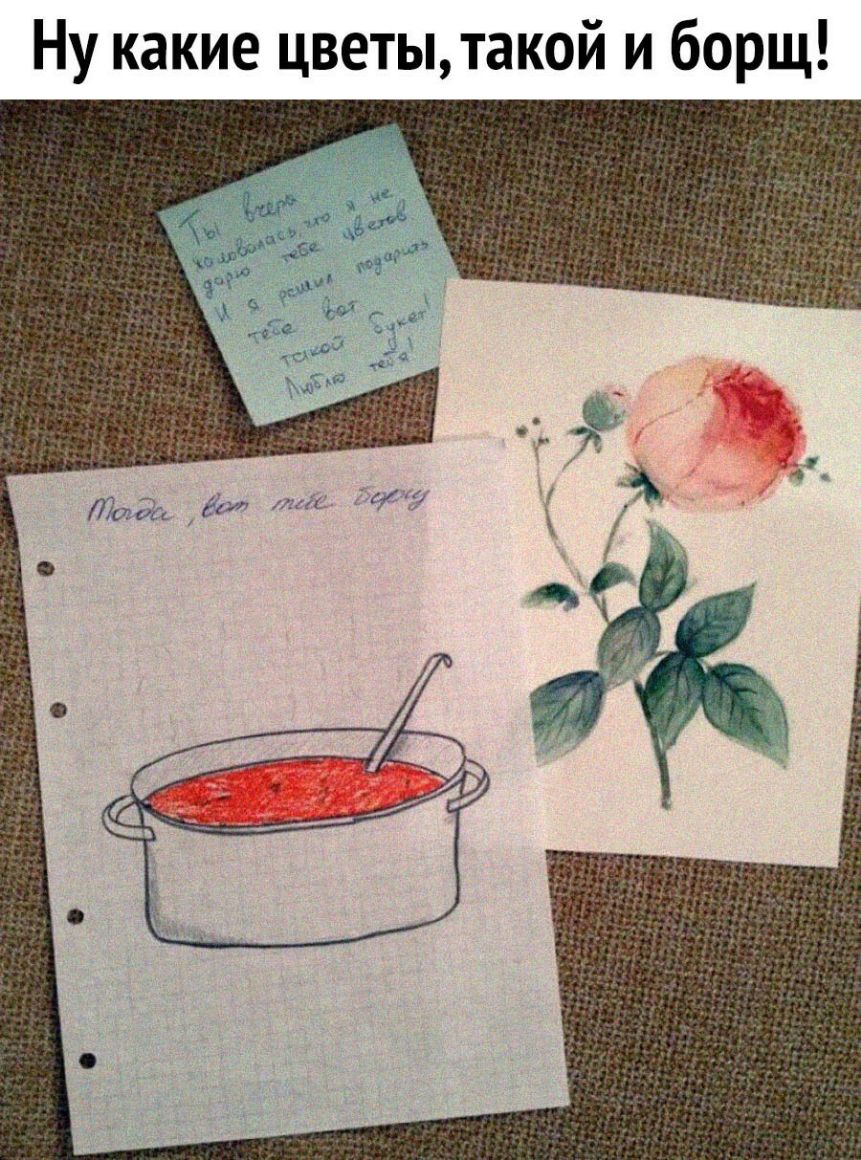 Ну какие цветы, такой и борщ!
Ты вчера
жаловалась, что я не
дарю тебе цветов
И я решил подарить
тебе вот
такой букет!
Люблю тебя!
Тогда, вот тебе борщ